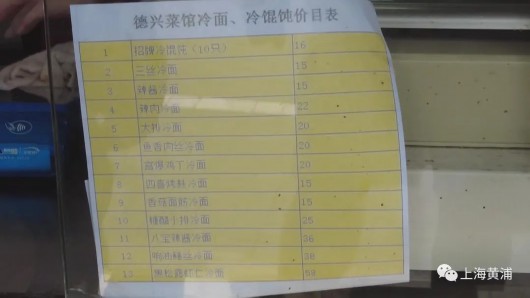 德兴菜馆冷面、冷馄饨价目表
1 招牌冷馄饨（10只） 16
2 三丝冷面 15
3 辣酱冷面 15
4 辣肉冷面 22
5 大排冷面 20
6 鱼香肉丝冷面 20
7 宫保鸡丁冷面 20
8 四喜烤麸冷面 15
9 香菇面筋冷面 15
10 糖醋小排冷面 25
11 八宝辣酱冷面
12 冷面
13 冷面
上海黄浦